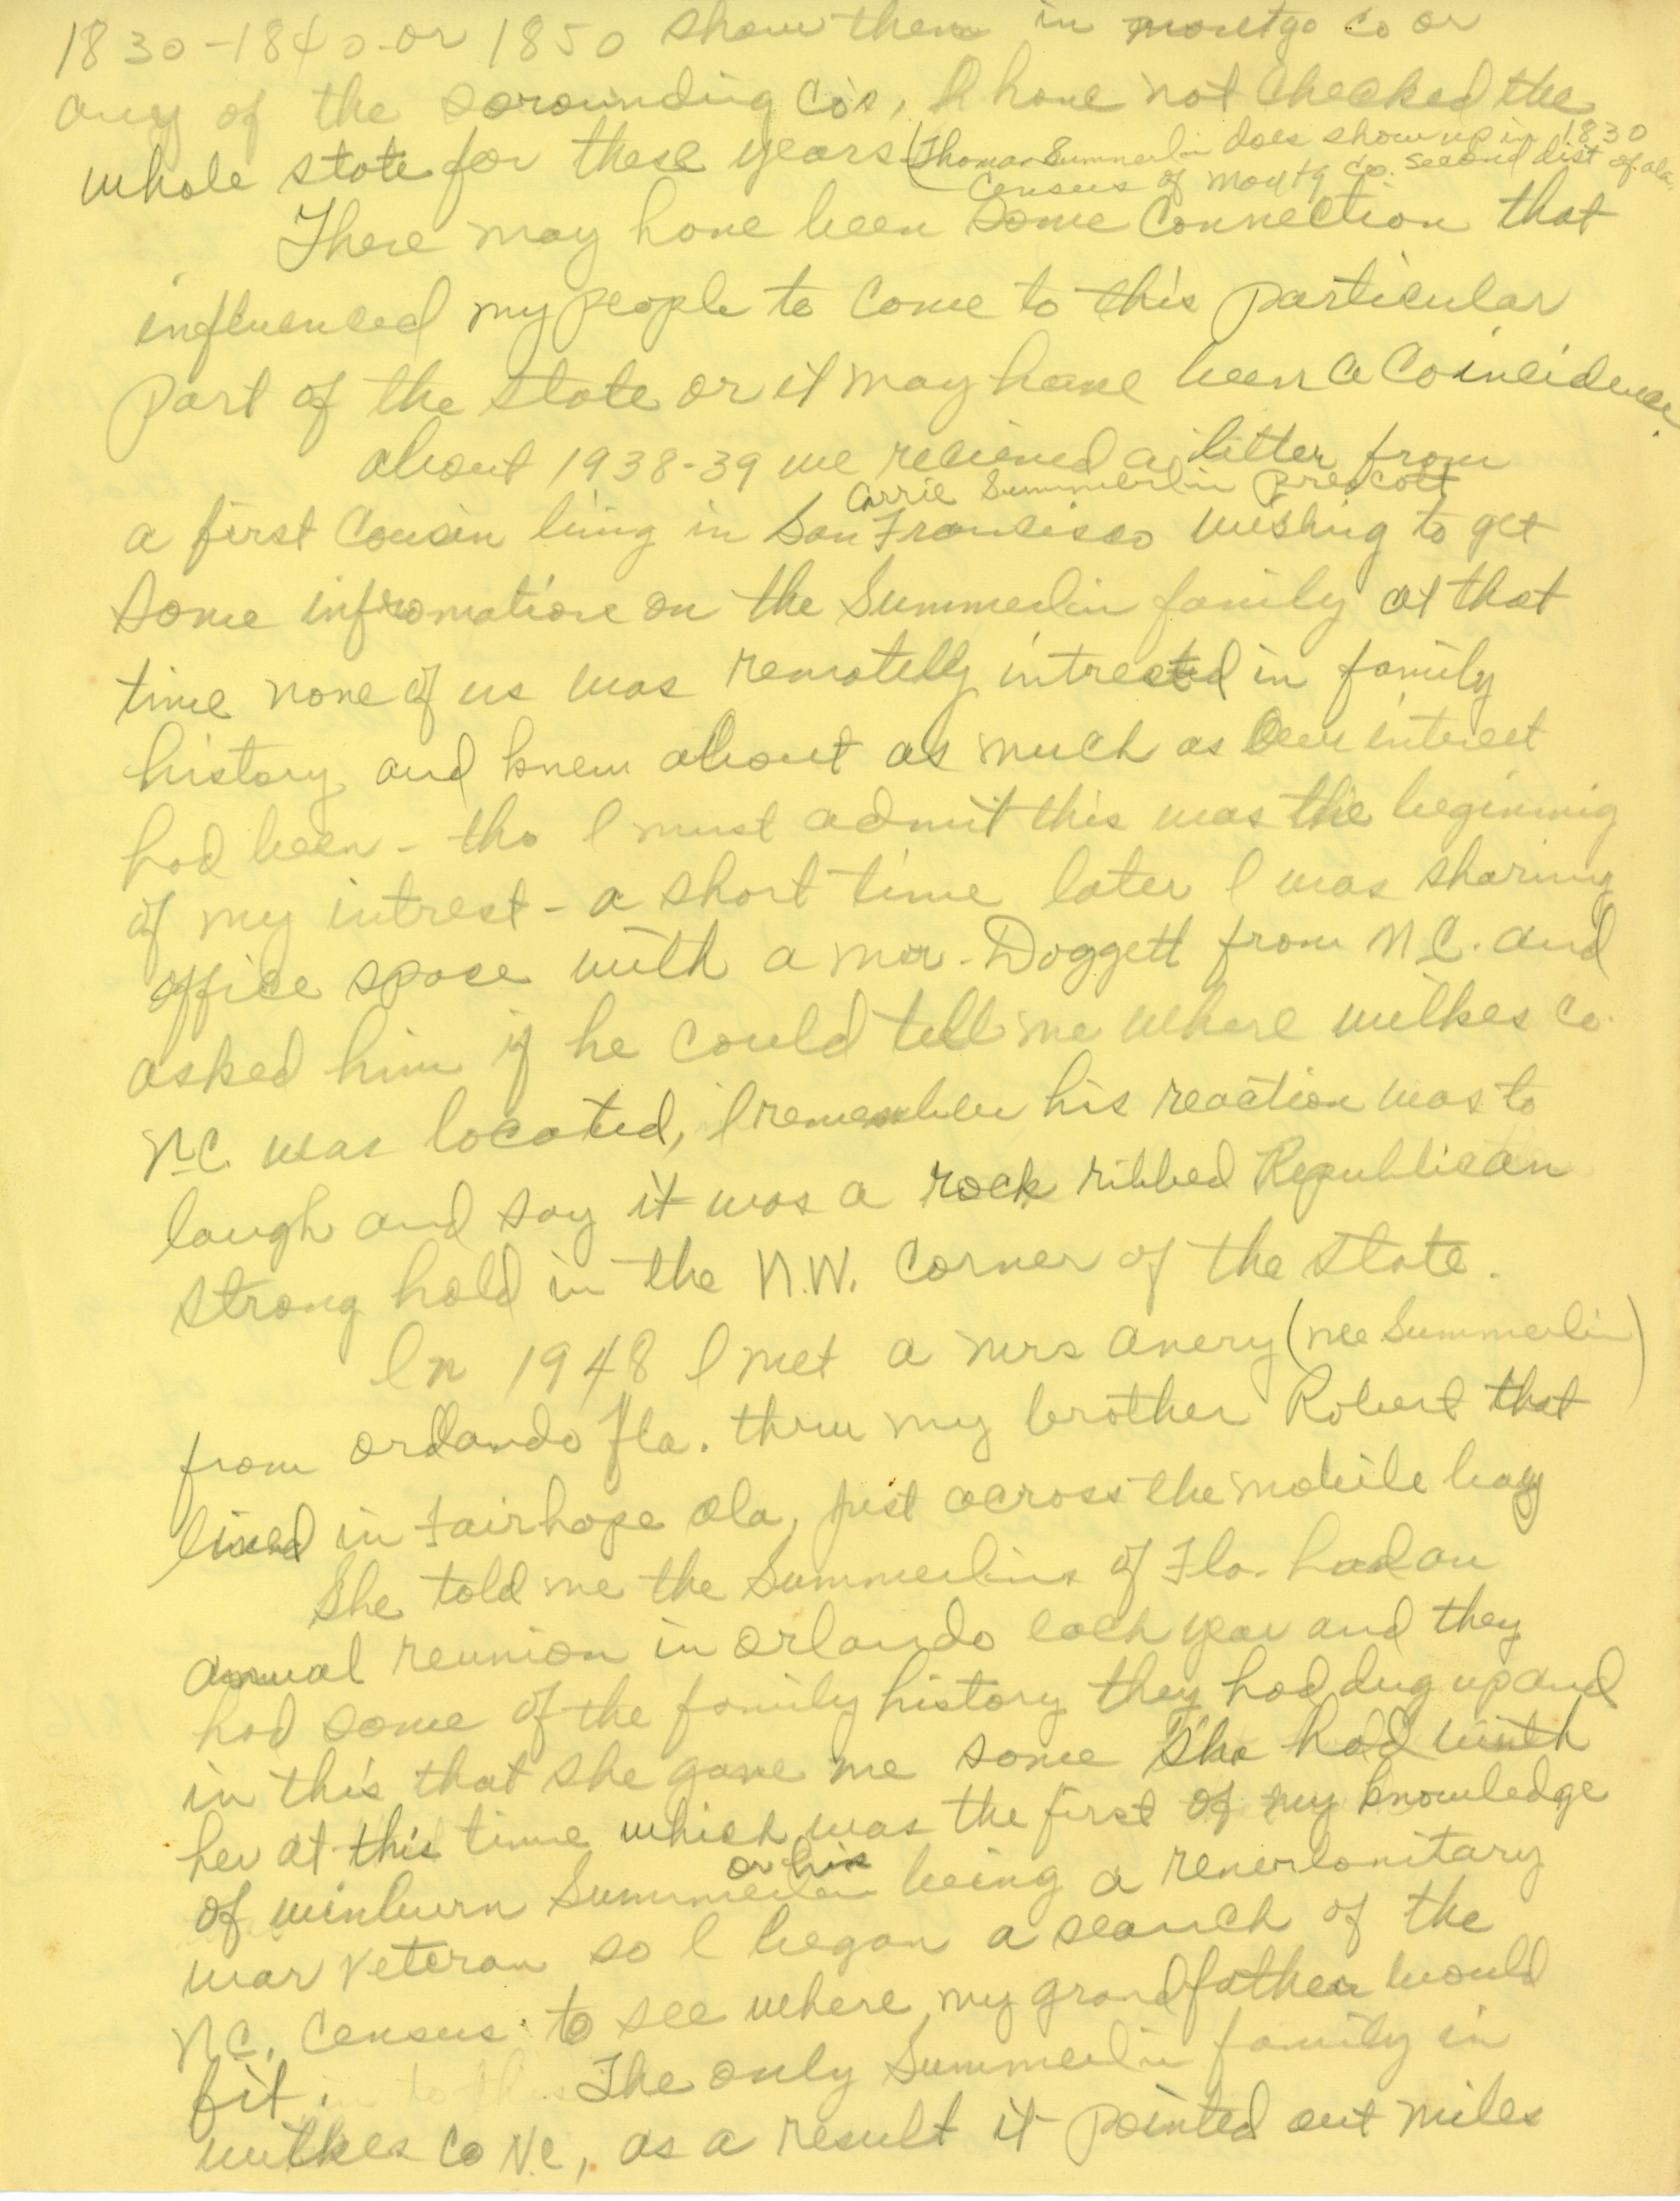 1830-1840-or 1850 show them in montgo co or
any of the sorounding Co's, I have not checked the
whole state for these years (Thomas Summerlin does show up in 1830
Census of Montg Co. second dist of ala.
There may have been some connection that
influenced my people to come to this particular
part of the state or it may have been a Coincidence.
about 1938-39 we recieved a letter from
Carrie Summerlin Prescott
a first Cousin living in San Francisco wishing to get
some infromation on the Summerlin family at that
time none of us was remotelly intrested in family
history and knew about as much as Our interest
had been - tho I must admit this was the beginnig
of my intrest - a short time later I was sharing
office space with a mr. Doggett from N.C. and
asked him if he could tell me where wilkes co.
N.C. was located, I remember his reaction was to
laugh and say it was a rock ribbed Republican
strong hold in the N.W. Corner of the state.
In 1948 I met a mrs avery (nee Summerlin)
from orlando Fla. thru my brother Robert that
lived in Fairhope Ala, just across the mobile bay
She told me the Summerlins of Fla. had an
annual reunion in orlando each year and they
had some of the family history they had dug up and
in this that she gave me some she had with
her at this time which was the first of my knowledge
or his
of winburn Summerlin being a reverlonitary
war veteran so I began a search of the
N.C. Census to see where my grandfather would
fit. in to this. The only Summerlin family in
wilkes Co N.C, as a result it pointed out miles